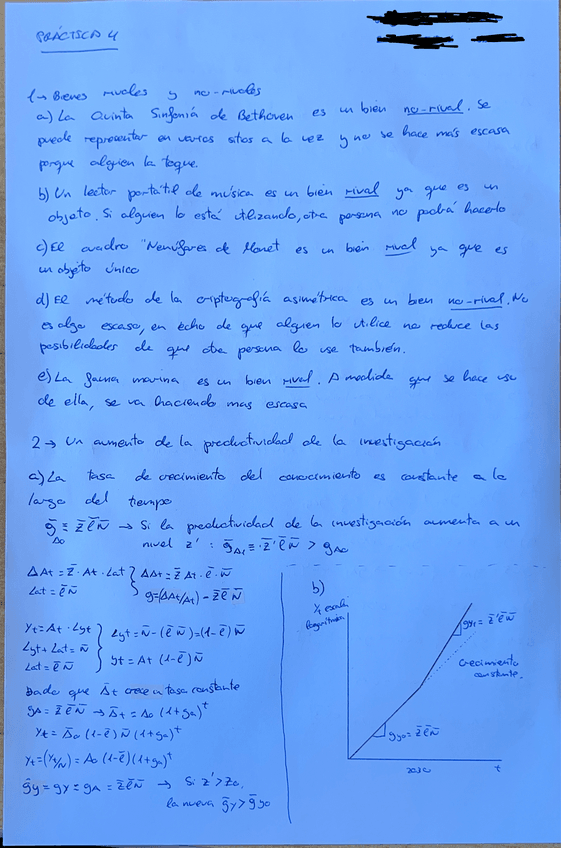 PRÁCTICA 4
1→ Bienes rivales y no-rivales
a) La Quinta Sinfonía de Bethoven es un bien no-rival. Se
puede representar en varios sitios a la vez y no se hace más escasa
porque alguien la toque.
b) Un lector portátil de música es un bien rival ya que es un
objeto. Si alguien lo está utilizando, otra persona no podrá hacerlo
c) El cuadro "Nenúfares de Monet es un bien rival ya que es
un objeto único
d) El método de la criptografía asimétrica es un bien no-rival. No
es algo escaso, en echo de que alguien lo utilice no reduce las
posibilidades de que otra persona lo use también.
e) La fauna marina es un bien rival. A medida que se hace uso
de ella, se va haciendo mas escasa
2→ Un aumento de la productividad de la investigación
a) La tasa de crecimiento del conocimiento es constante a lo
largo del tiempo
ḡA0 ≡ z̄ l̄ N̄ → Si la productividad de la investigación aumenta a un
nivel z' : ḡA1 ≡ z̄' l̄ N̄ > gA0
ΔAt = z̄ · At · Lat } ΔAt = z̄ At · l̄ · N̄
Lat = l̄ N̄ g=(ΔAt/At) = z̄ l̄ N̄
Yt = At · Lyt } Lyt = N̄ - (l̄ N̄) = (1-l̄) N̄
Lyt + Lat = N̄
Lat = l̄ N̄ yt = At (1-l̄) N̄
Dado que Āt crece a tasa constante
gA = z̄ l̄ N̄ → Āt = Ao (1+ga)^t
Yt = Āo (1-l̄) N̄ (1+ga)^t
yt = (Yt/N) = Ao (1-l̄)(1+ga)^t
ḡy = gY = gA = z̄ l̄ N̄ → Si z' > Zo,
la nueva ḡy > ḡyo
b)
Yt escala
logarítmica
gy1 = z̄' l̄ N̄
Crecimiento
constante.
gyo = z̄ l̄ N̄
2030
t